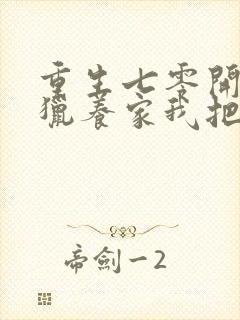 重生七零開
獵養家我把
帝劍一2